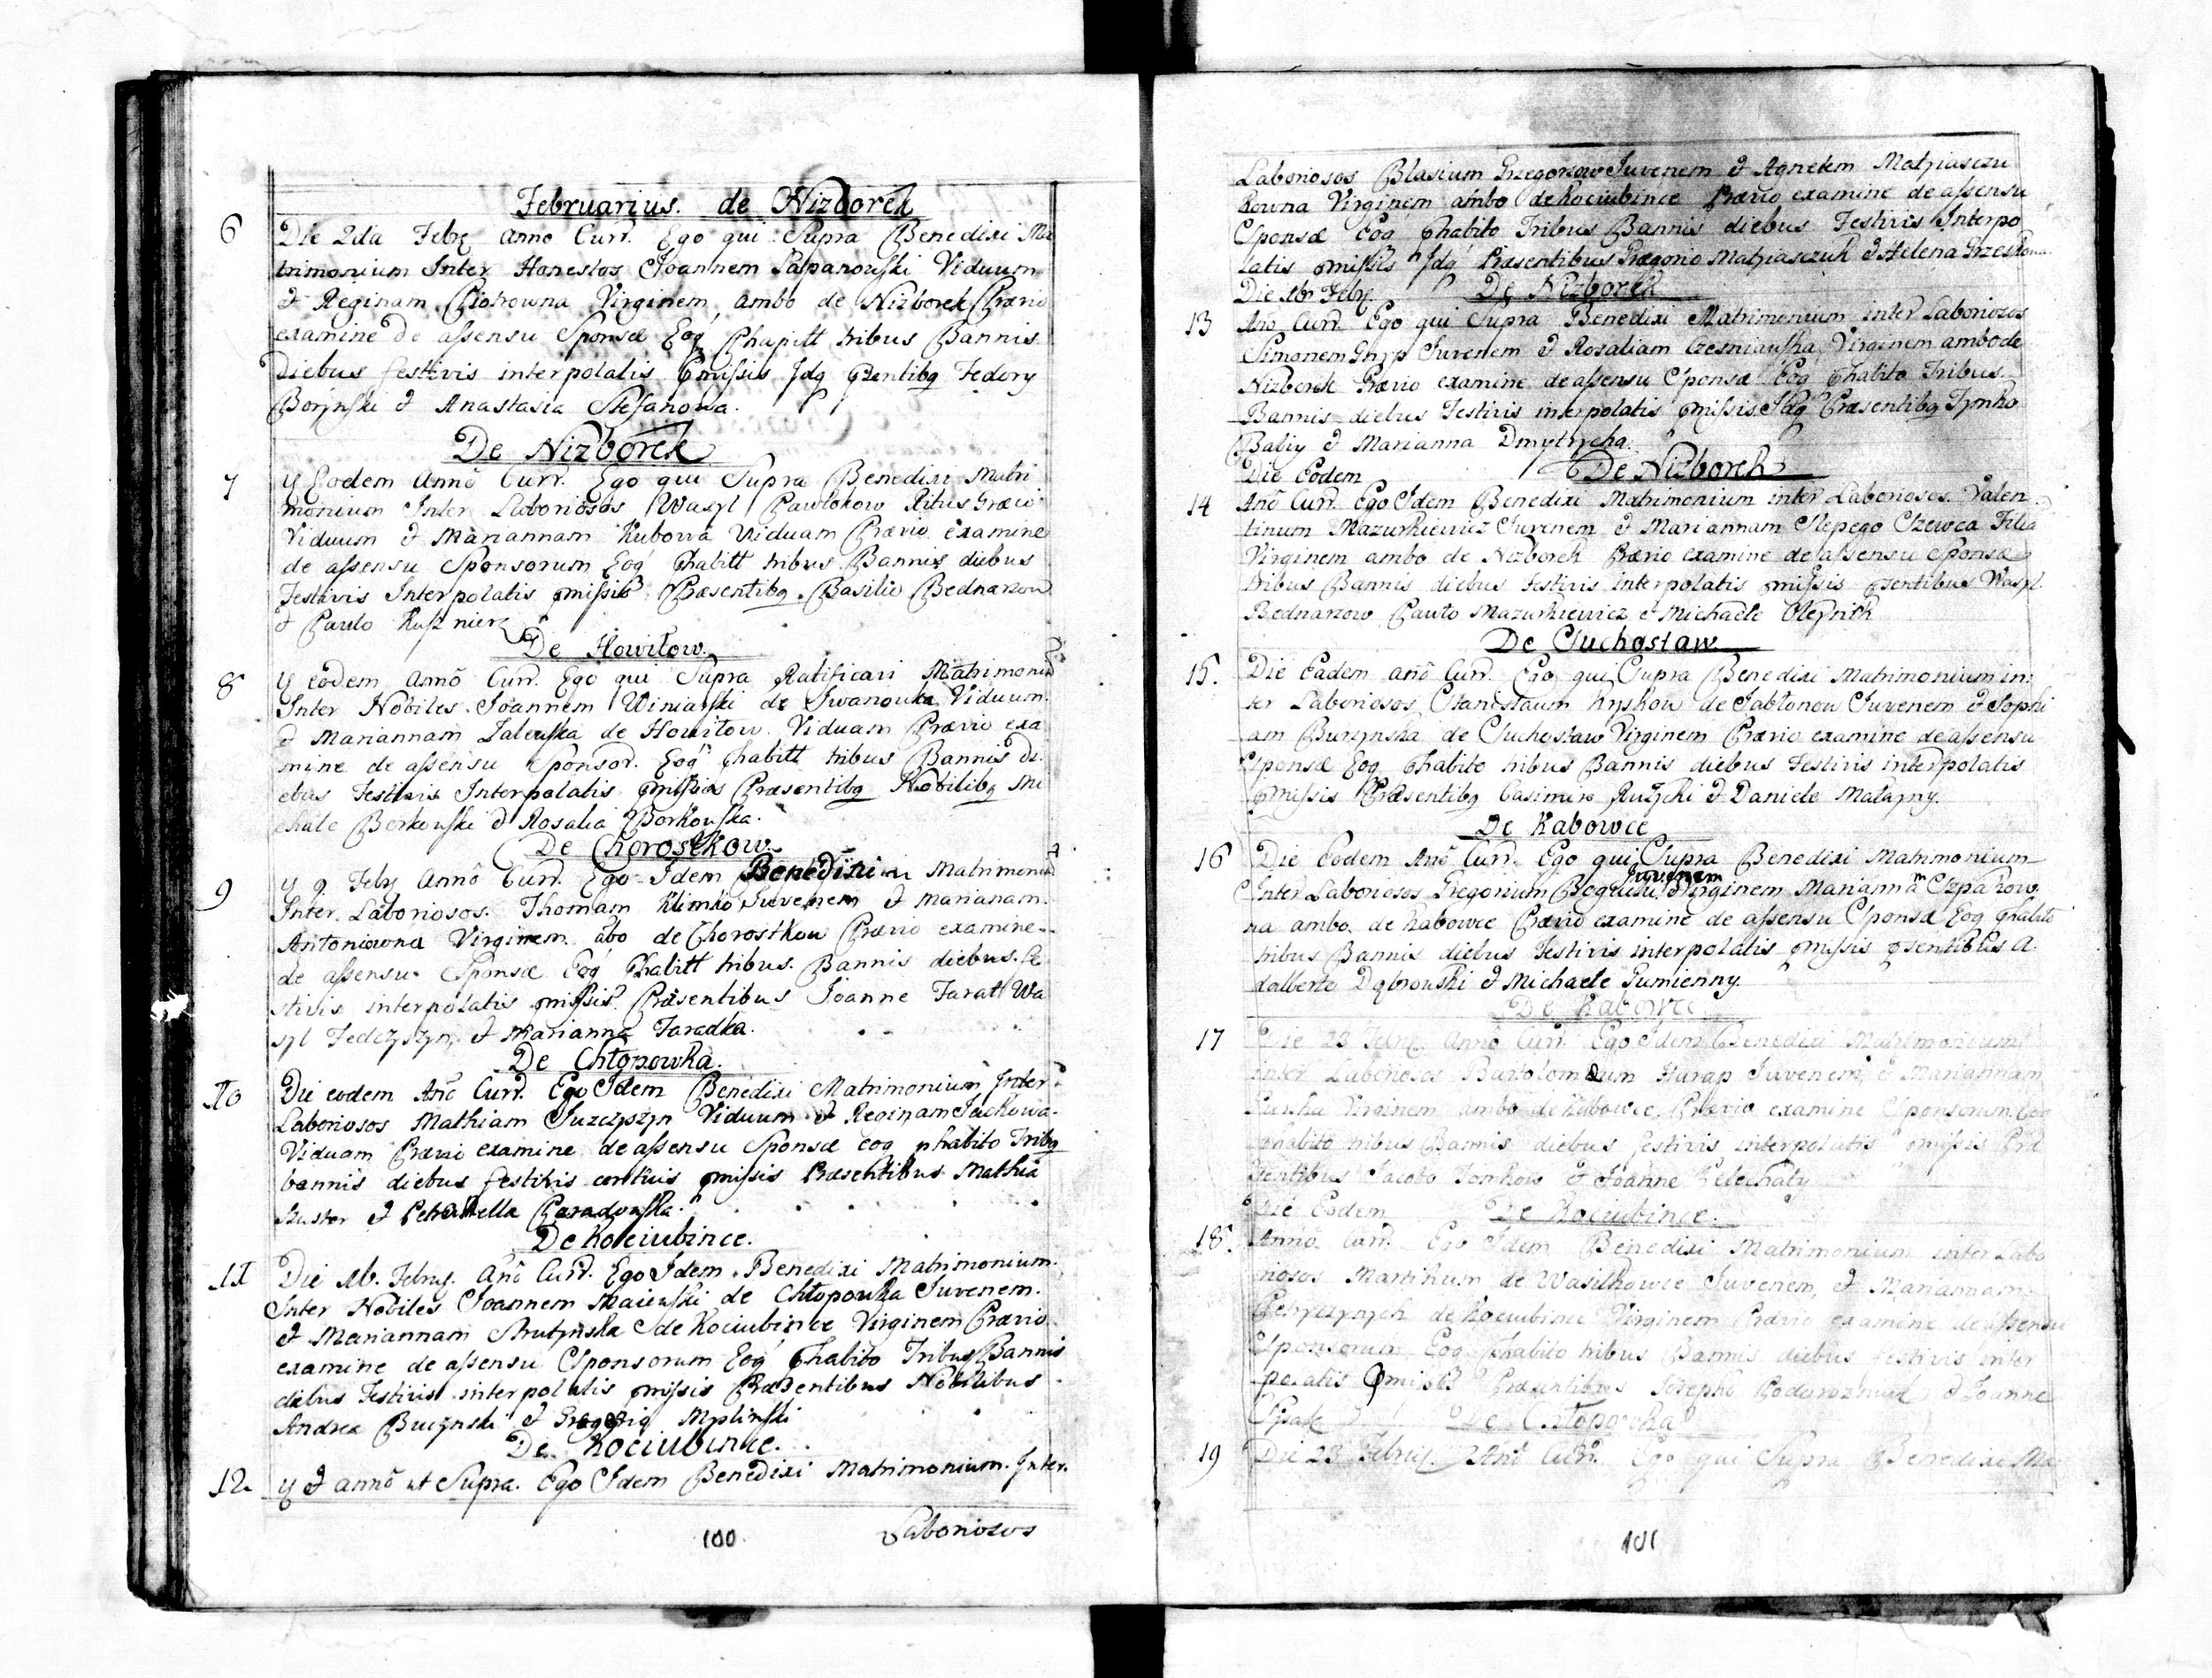 Februarius. de Nizborek
6 Die 2da Febr. Anno Curr. Ego qui Supra Benedixi Ma
trimonium Inter Honestos Joannem Sapanowski Viduum
& Reginam Piotrowna Virginem ambo de Nizborek Prævio
examine de assensu Sponsæ Eoq tribus Bannis
Diebus festivis interpolatis pmissis Idq pzentibq Fedory
Boryński & Anastasia Stefanowa.
De Nizborek
7 y Eodem Anno Curr. Ego qui Supra Benedixi Matri
monium Inter Laboriosos Wasyl Pawlokow Ritus Græco
Viduum & Mariannam Kubowa Viduam Prævio Examine
de assensu Sponsorum Eoq phabitt tribus Bannis diebus
Festivis Interpolatis pmissis Præsentibq Basilio Bednarzow
& Pawlo Kusznierz
De Howilow.
8 y eodem Anno Curr. Ego qui Supra Ratificavi Matrimoniu
Inter Nobiles Joannem Winiarski de Iwanowka Viduum.
& Mariannam Zaleuska de Howilow Viduam Prævio exa
mine de assensu Sponsor. Eoq phabitt tribus Bannis di.
ebus Festivis Interpolatis pmissis Præsentibq Nobilibq Mi
chale Borkowski & Rosalia Borkowska.
De Chorostkow.
9 y 9. Febr Anno Curr. Ego Idem Benedixi Matrimoniu
Inter Laboriosos. Thomam Klimko Juvenem & Marianam.
Antoniowna Virginem abo de Chorostkow Prævio examine
de assensu Sponsæ Eoq phabitt tribus. Bannis diebus fe
stivis interpolatis pmissis Præsentibus Joanne Taratt Wa
syl Fedczyszyn, & Marianna Taradka.
De Chłopowka.
10 Die eodem Ano Curr. Ego Idem Benedixi Matrimonium Inter
Laboriosos Mathiam Juzczyszyn Viduum & Reginam Jackowa
Viduam Prævio examine de assensu Sponsæ eoq phabito Tribq
bannis diebus festivis pmissis Præsentibus Mathia
Szuster & Petronella Paradowska.
De Kociubince.
11 Die 16. Febry. Ano Curr. Ego Idem Benedixi Matrimonium.
Inter Nobiles Joannem Maiewski de Chłopowka Juvenem.
& Mariannam Strutynska de Kociubince Virginem Prævio
examine de assensu Sponsorum Eoq phabito Tribus Bannis
diebus Festivis interpolatis pmissis Præsentibus Nobilibus
Andrea Buczynski & Gregorio Myslinski
De Kociubince.
12. y & anno ut Supra. Ego Idem Benedixi Matrimonium. Inter.
Laboriosos
100
Laboriosos Blasium Grzegorzow Juvenem & Agnetem Matyiaszczu
kowna Virginem ambo de Kociubince Prævio examine de assensu
Sponsæ Eoq phabito Tribus Bannis diebus Festivis Interpo
latis pmissis Idq Præsentibus Matyiaszczuk & Helena
Die 16 Febr. De Nizborek
13 Ano Curr. Ego qui Supra Benedixi Matrimonium inter Laboriozos
Simonem Juvenem & Rosaliam Czesniawska Virginem ambo de
Nizborek Prævio examine de assensu Sponsæ Eoq phabito Tribus
Bannis diebus Festivis interpolatis pmissis Idq Præsentibq Tymko
Babiy & Marianna Dmytrycha.
Die Eodem De Nizborek
14 Ano Curr. Ego Idem Benedixi Matrimonium inter Laboriosos Valen
tinum Mazurkiewicz Juvenem & Mariannam Slepego Szewca Filia
Virginem ambo de Nizborek Prævio examine de assensu Sponsæ
tribus Bannis diebus Festivis Interpolatis pmissis pzentibus Wasyl
Bednarzow Pawlo Mazurkiewicz & Michaele Oleynik
De Suchostaw
15. Die Eadem ano Curr. Ego qui Supra Benedixi Matrimonium in
ter Laboriosos Stanislaum Kyskow de Jabłonow Juvenem & Sophi
am Burzynska de Suchostaw Virginem Prævio examine de assensu
Sponsæ Eoq phabito tribus Bannis diebus Festivis interpolatis
pmissis Præsentibq Casimiro Ruzycki & Daniele Matayny.
De Kabowce
16 Die Eodem Ano Curr. Ego qui Supra Benedixi Matrimonium
Juvenem
Inter Laboriosos Gregorium Virginem Mariannam Szpakow
na ambo de Kabowce Prævio examine de assensu Sponsæ Eoq phabito
tribus Bannis diebus Festivis interpolatis pmissis psentibus A
dalberto Dąbrowski & Michaele Gumienny.
De Kabowce
17 Die 23 Febr. Anno Curr. Ego Idem Benedixi Matrimonium
inter Laboriosos Bartolomæum Harap Juvenem, & Mariannam
Virginem ambo de Kabowce, Prævio examine Sponsorum Eoq
phabito tribus Bannis diebus festivis interpolatis pmissis Præ
sentibus Jacobo Tomkow & Joanne Pelechaty
Die Eodem De Kociubince.
18. Anno Curr. Ego Idem Benedixi Matrimonium inter Labo
riosos Martinum de Wasilkowce Juvenem, & Mariannam
de Kociubince Virginem Prævio examine de assensu
Sponsorum Eoq phabito tribus Bannis diebus festivis inter
polatis pmissis Præsentibus Josepho & Joanne
De Chłopowka
19 Die 23 Febry. Ano Curr. Ego qui Supra Benedixi Ma
101